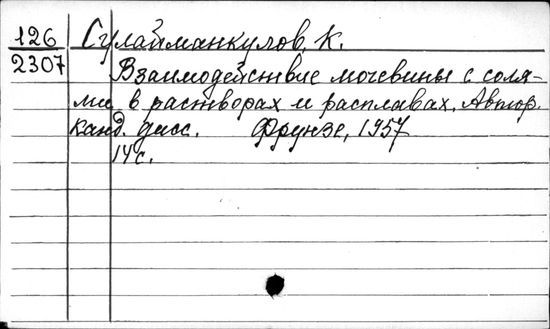 126 Сулайманкулов, К.
2307 Взаимодействие мочевины с соля-
ми в растворах и расплавах. Автор.
канд. дисс. Фрунзе, 1957
14 с.